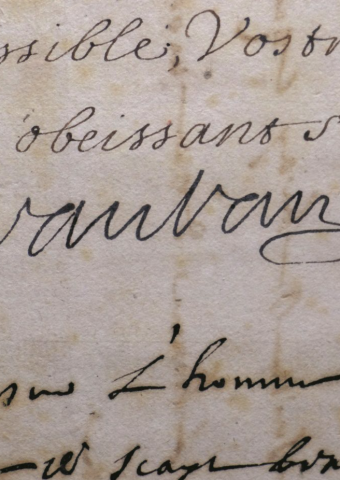 ssible, Vostr
obeissant s
vauban
L'homme
scayt